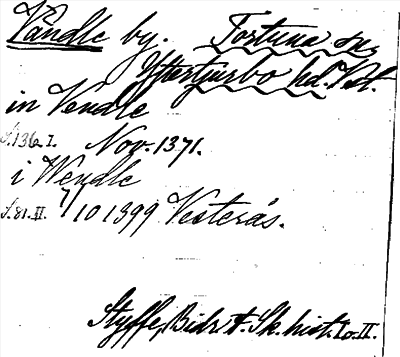 Vändle by. Tortuna sn.
Yttertjurbo hd. Vstl.
in Vendle
S. 136 I. Nov. 1371.
i Wendle
S. 81. II. 7/10 1399 Vesterås.
Styffe, Bidr. t. Sk. hist. I o. II.